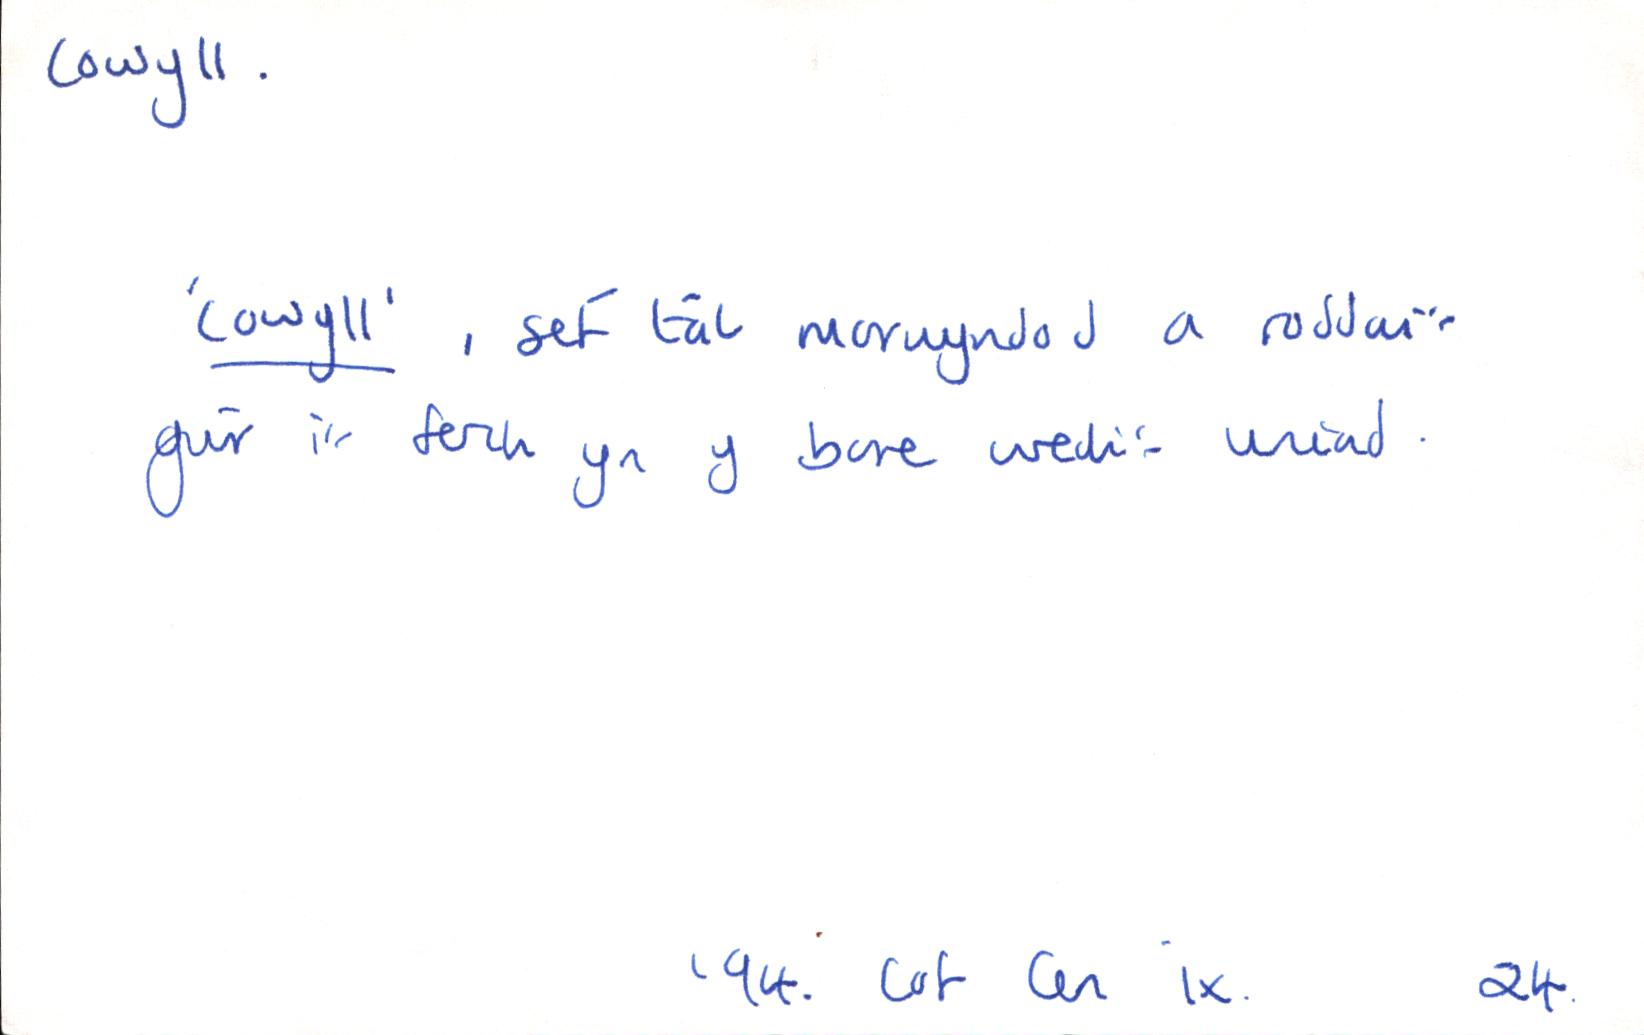 Cowyll.
'Cowyll', sef tâl morwyndod a roddai'r
gŵr i'r ferch yn y bore wedi'r uniad.
'94. Cof Cen ix. 24.